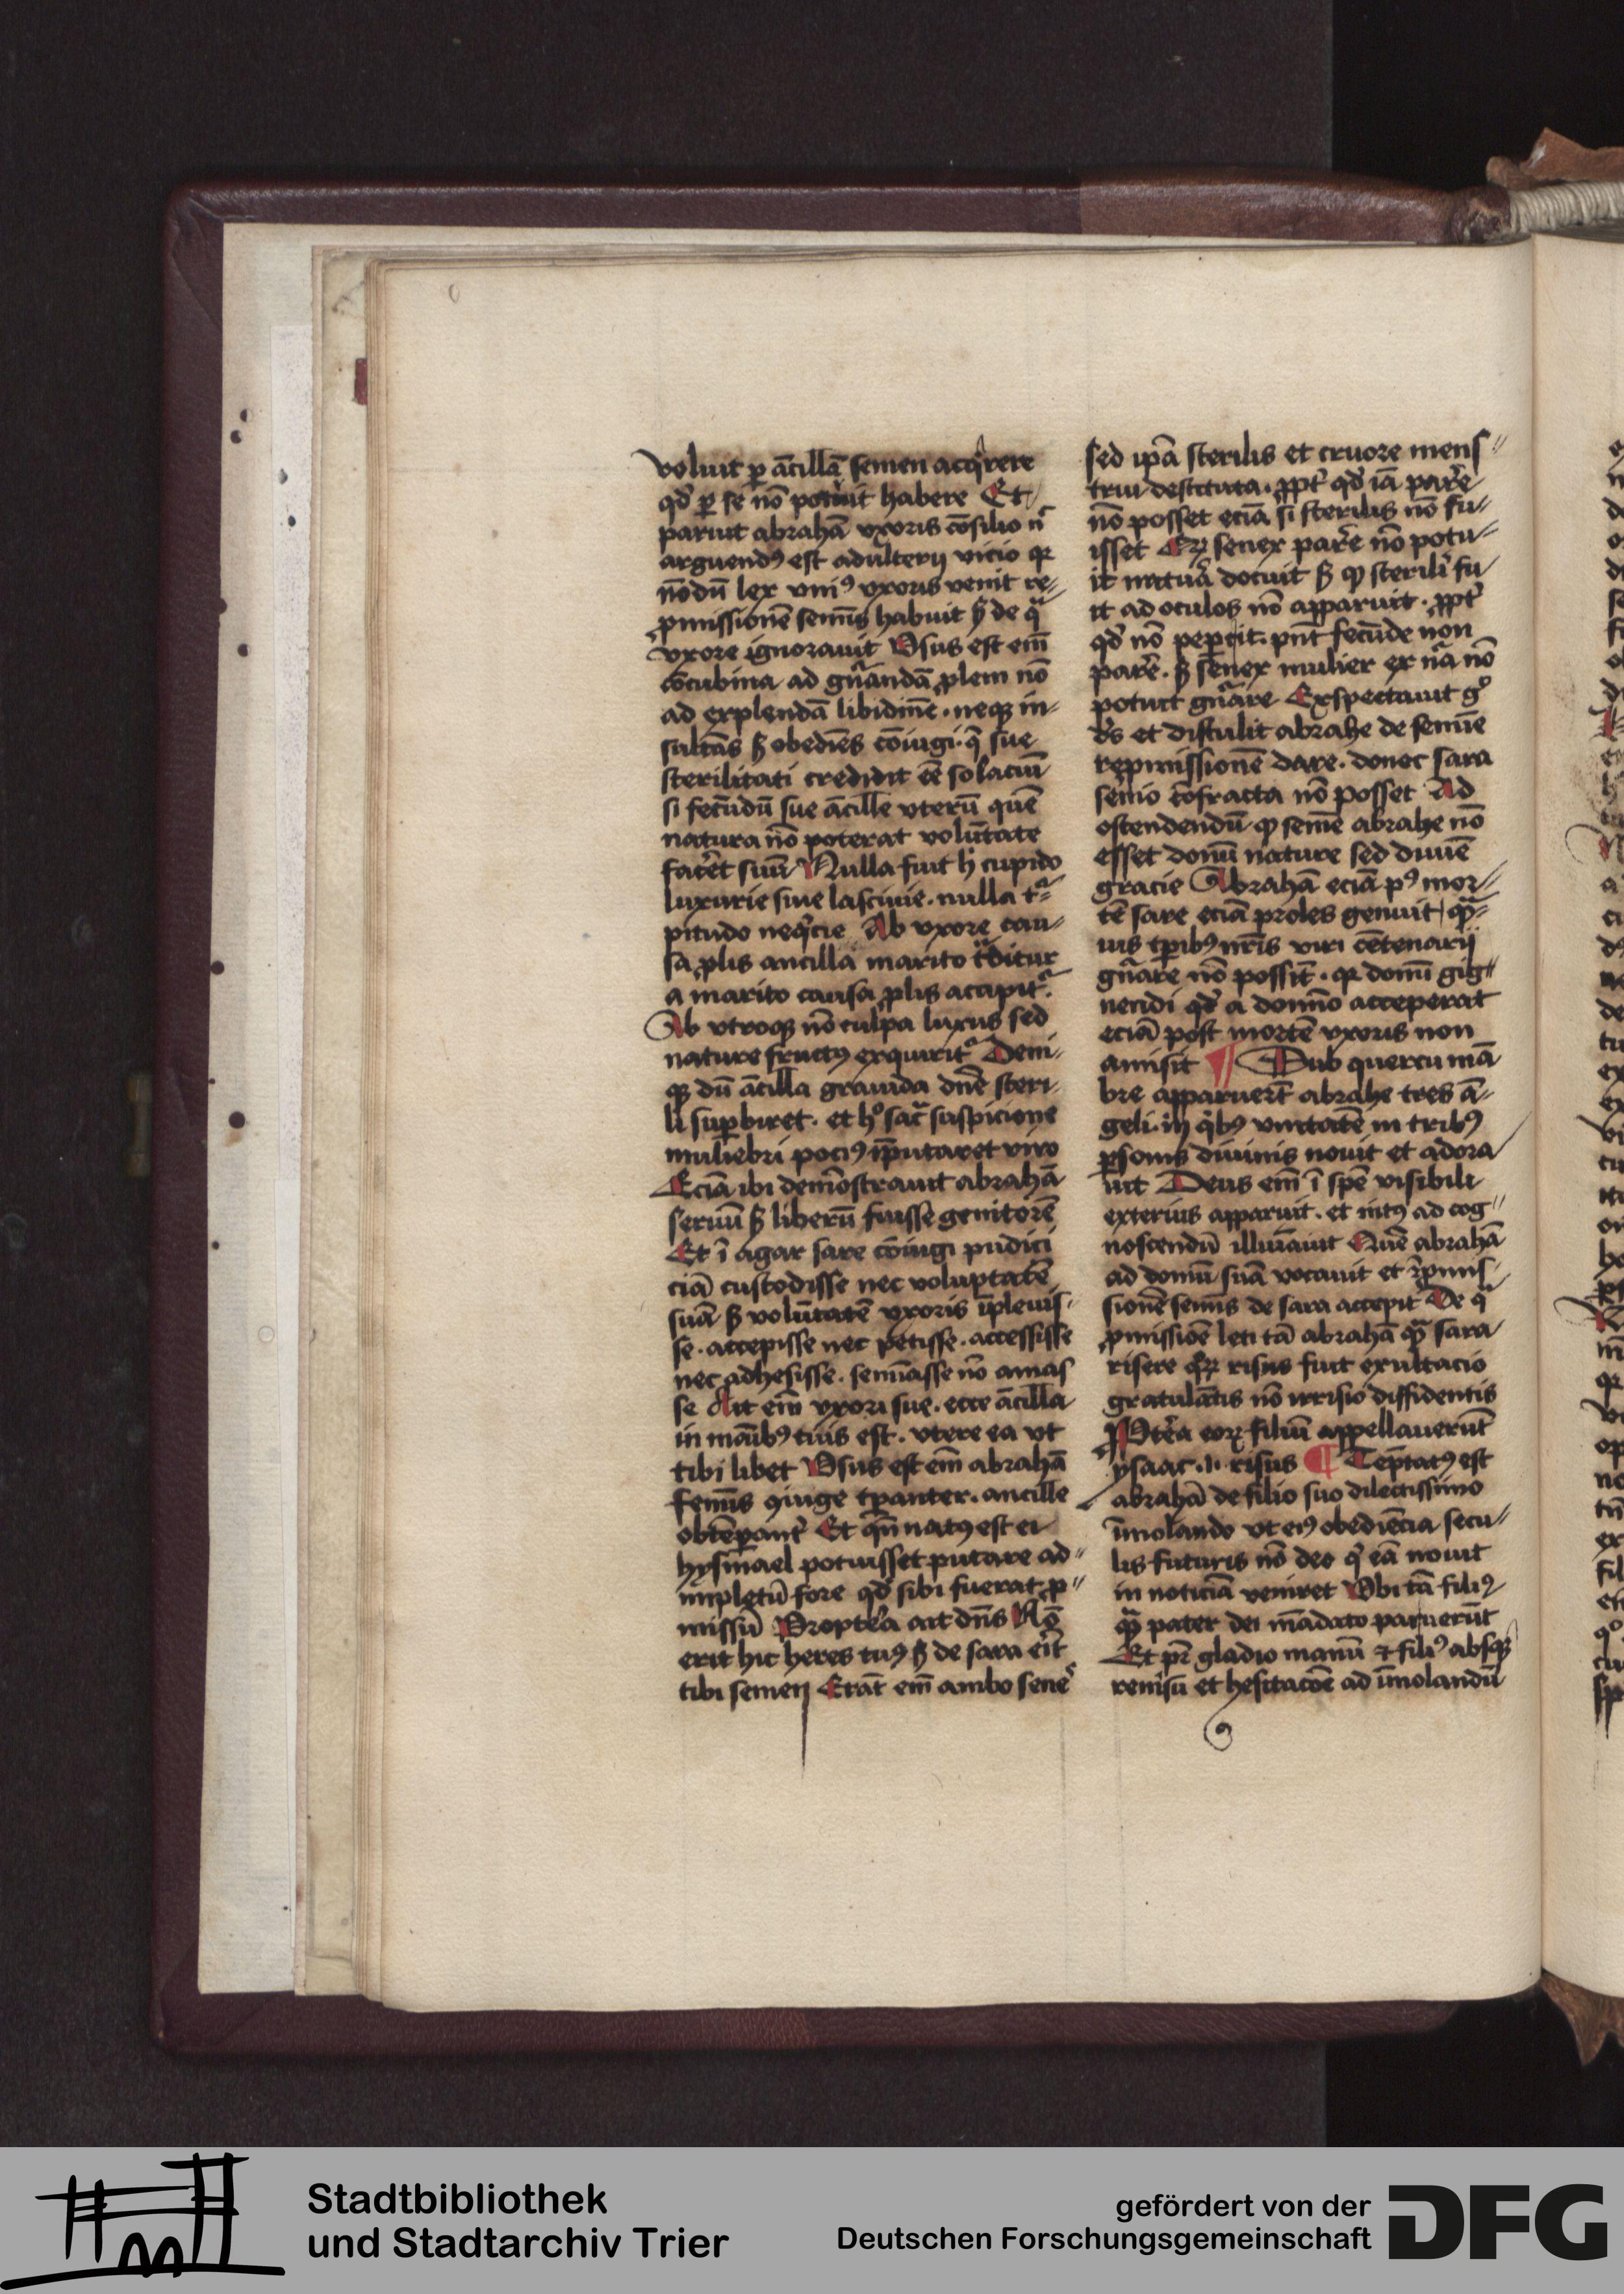 voluit ꝑ ācillā semen acqͥrere
qď ꝑ se nō potuit habere Et
paruit abrahā vxoris cōsilio nͨ
arguendꝰ est adulterij vicio qꝛ
nōdū lex vniꝰ vxoris venit re-
ꝓmissionē semīs habuit ẜ de qͣ
vxore ignorauit Vsus est em̄
cōcubina ad gn̄andā ꝓlem nō
ad explendā libidinē. neqꝫ in-
sultās ẜ obediēs cōiugi. qͤ sue
sterilitati credidit eē solaciū
si fecūdū sue ācille vterū quē
natura nō poterat volūtate
facēt suū Nulla fuit hͨ cupido
luxurie siue lasciuie. nulla tͬ-
pitudo neqͥcie Ab vxore cau-
sa ꝓlis ancilla marito tͣditur
a marito causa ꝓlis accipit᷑.
Ab vtroqꝫ nō culpa luxus sed
nature fructꝰ exquirit᷑ Deni-
qꝫ dū ācilla grauida dn̄e steri-
li suꝑbiret. et hͦ sarͣ suspicione
muliebri pociꝰ īputaret viro
Eciā ibi demōstrauit abrahā
seruū ẜ liberū fuisse genitorē
Et ī agar sare cōiugi pudici
ciā custodisse nec voluptatē
suā ẜ volūtatē vxoris īpleuis-
se. accepisse nec petisse. accessisse
nec adhesisse. semīasse nō amas
se Ait em̄ vxori sue. ecce ācilla
in manibꝰ tuis est. vtere ea vt
tibi libet Vsus est em̄ abrahā
femīs ꝯiuge tꝑanter. ancille
obtēꝑant᷑ Et qn̄ natꝰ est ei
hysmael potuisset putare ad-
impletū fore qď sibi fuerat ꝓ-
missū Propteͬa ait dn̄s No
erit hic heres tuꝰ ẜ de sara eīt
tibi semen Erāt em̄ ambo seneͬ
sed ip̄a sterilis et cruore mens-
trui destituta. ꝓpt᷑ qď iā paͬe
nō posset eciā si sterilis nō fu-
isset Porꝛ senex paͬe nō potu-
it natuͬa docuit ẜ ꝙ sterilͥ fu
it ad oculos nō apparuit. ꝓpt᷑
qď nō peꝑcit. pn̄t fecūde non
paͬe. ẜ senex mulier ex nͣa nō
potuit gn̄are Exspectauit gͦ
ds̄ et distulit abrahe de semīe
repmissionē dare. donec sara
senio cōfracta nō posset Ad
ostendendū ꝙ semē abrahe nō
esset donū nature sed diuīe
gracie Abrahā eciā pꝰ mor-
tē sare eciā proles genuit qͣ-
uis tꝑibꝰ nr̄is viri cētenarij
gn̄are nō possīt. qꝛ donū gig-
nendi qď a domīo acceperat
eciā post mortē vxoris non
amisit ¶ Sub quercu mā
bre apparuerūt abrahe tres ā-
geli. in qͥbꝰ vnitatē in tribꝰ
ꝑsonis diuinis nouit et adora
uit Deus em̄ ī spē visibili
exterius apparuit. et intꝰ ad cog-
noscendū illuīauit Quē abrahā
ad domū suā vocauit et r̄ꝓmis-
sionē semīs de sara accepit De qͣ
ꝓmissiōe leti tā abrahā qͣ sara
risere qͦꝝ risus fuit exultacio
gratulātis nō irrisio diffidentis
Ptͤea eoꝝ filiū appellauerūt
ysaac .i. risus ¶ Tēptatꝰ est
abrahā de filio suo dilectissimo
īmolando vt eiꝰ obediēcia secu-
lis futuris nō deo qͥ eā nouit
in noticiā veniret Vbi tā filiꝰ
qͣ pater dei mādato paruerūt
Et pr̄ gladio manū ⁊ filiꝰ absqꝫ
renisu et hesitacōe ad īmolandū
Stadtbibliothek
und Stadtarchiv Trier
gefördert von der
Deutschen Forschungsgemeinschaft
DFG